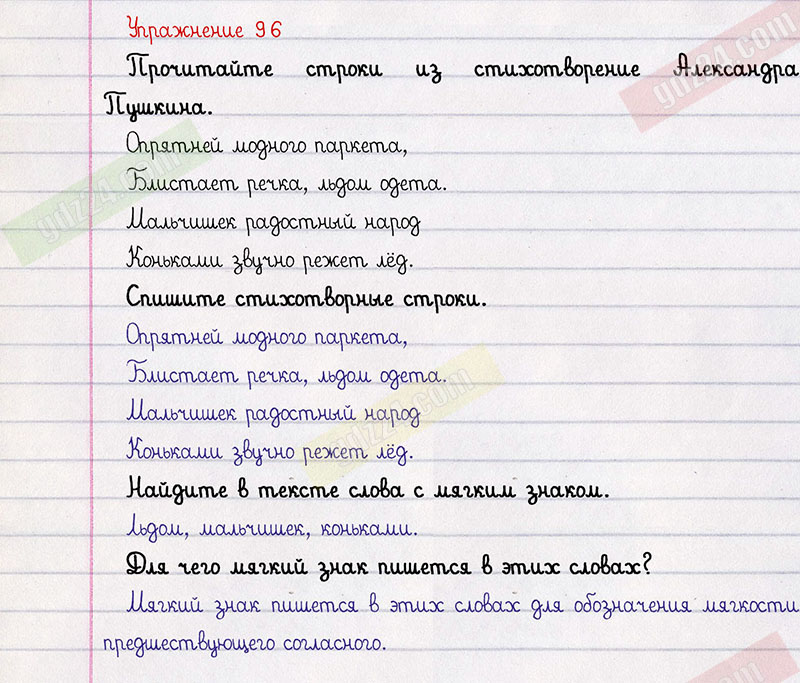 Упражнение 96
Прочитайте строки из стихотворение Александра
Пушкина.
Опрятней модного паркета,
Блистает речка, льдом одета.
Мальчишек радостный народ
Коньками звучно режет лёд.
Спишите стихотворные строки.
Опрятней модного паркета,
Блистает речка, льдом одета.
Мальчишек радостный народ
Коньками звучно режет лёд.
Найдите в тексте слова с мягким знаком.
Льдом, мальчишек, коньками.
Для чего мягкий знак пишется в этих словах?
Мягкий знак пишется в этих словах для обозначения мягкости
предшествующего согласного.
gdz24.com
gdz24.com
gdz24.com